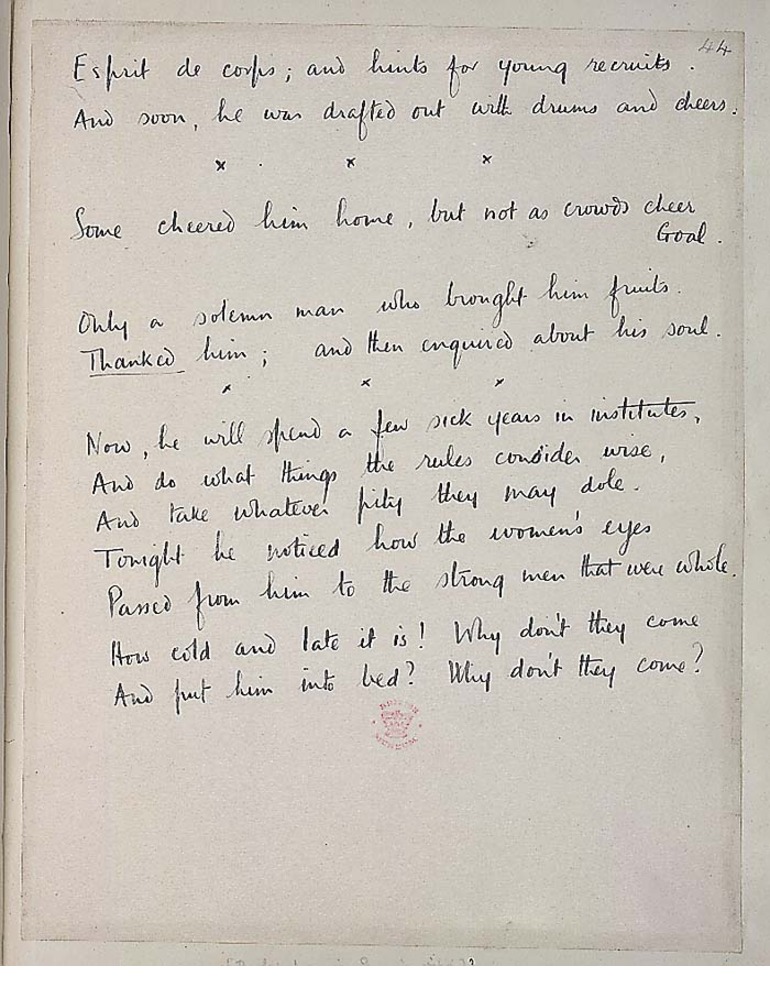 44
Esprit de corps; and hints for young recruits.
And soon, he was drafted out with drums and cheers.
x . x x
Some cheered him home, but not as crowds cheer
Goal.
Only a solemn man who brought him fruits.
Thanked him; and then enquired about his soul.
x x x
Now, he will spend a few sick years in institutes,
And do what things the rules consider wise,
And take whatever pity they may dole.
Tonight he noticed how the women's eyes
Passed from him to the strong men that were whole.
How cold and late it is! Why don't they come
And put him into bed? Why don't they come?
BRITISH
MUSEUM